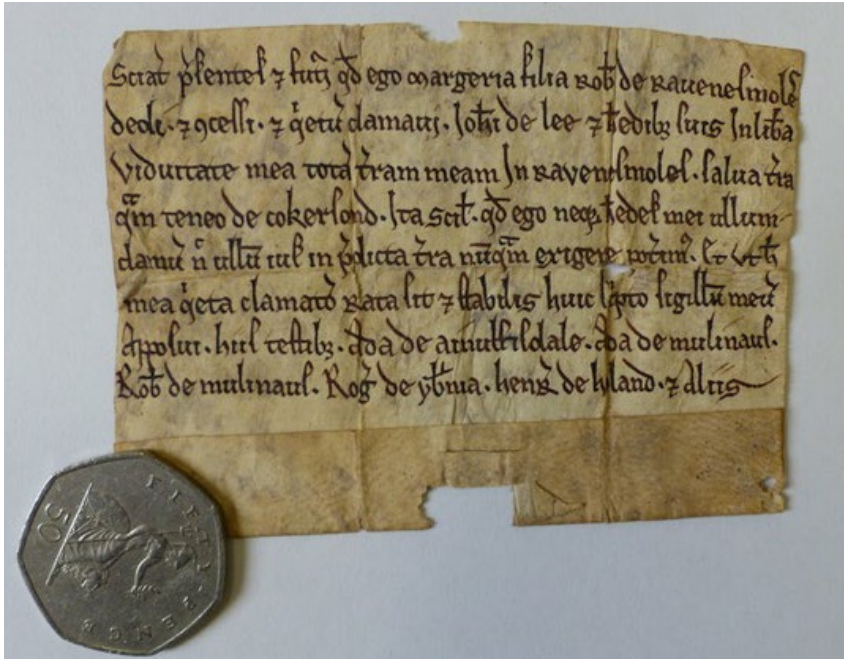 Sciāt p̄sentes ⁊ futuri qđ ego Margeria filia Roƀ de Ravenesmoles
dedi · ⁊ ꝯcessi · ⁊ q̇etū clamavi · Joħi de lee ⁊ ħedibꝫ suis In liƀa
Viduitate mea totā t̄ram meam In Ravenesmoles · salva t̄ra
qͣm teneo de cokersond · Ita scil · qđ ego neqꝫ ħedes mei ullum
clamiū ullū ius in p̄dicta t̄ra nūqͣm exigere
mea q̇eta clamatō rata sit ⁊ stabilis huic sc̄pto sigillū meū
Apposui · hiis testibꝫ · Ada de ainulfisdale · Ada de mulinaus ·
Roƀ de mulinaus · Rog̃ de · henr̃ de · ⁊ Aliis
FIFTY PENCE
50